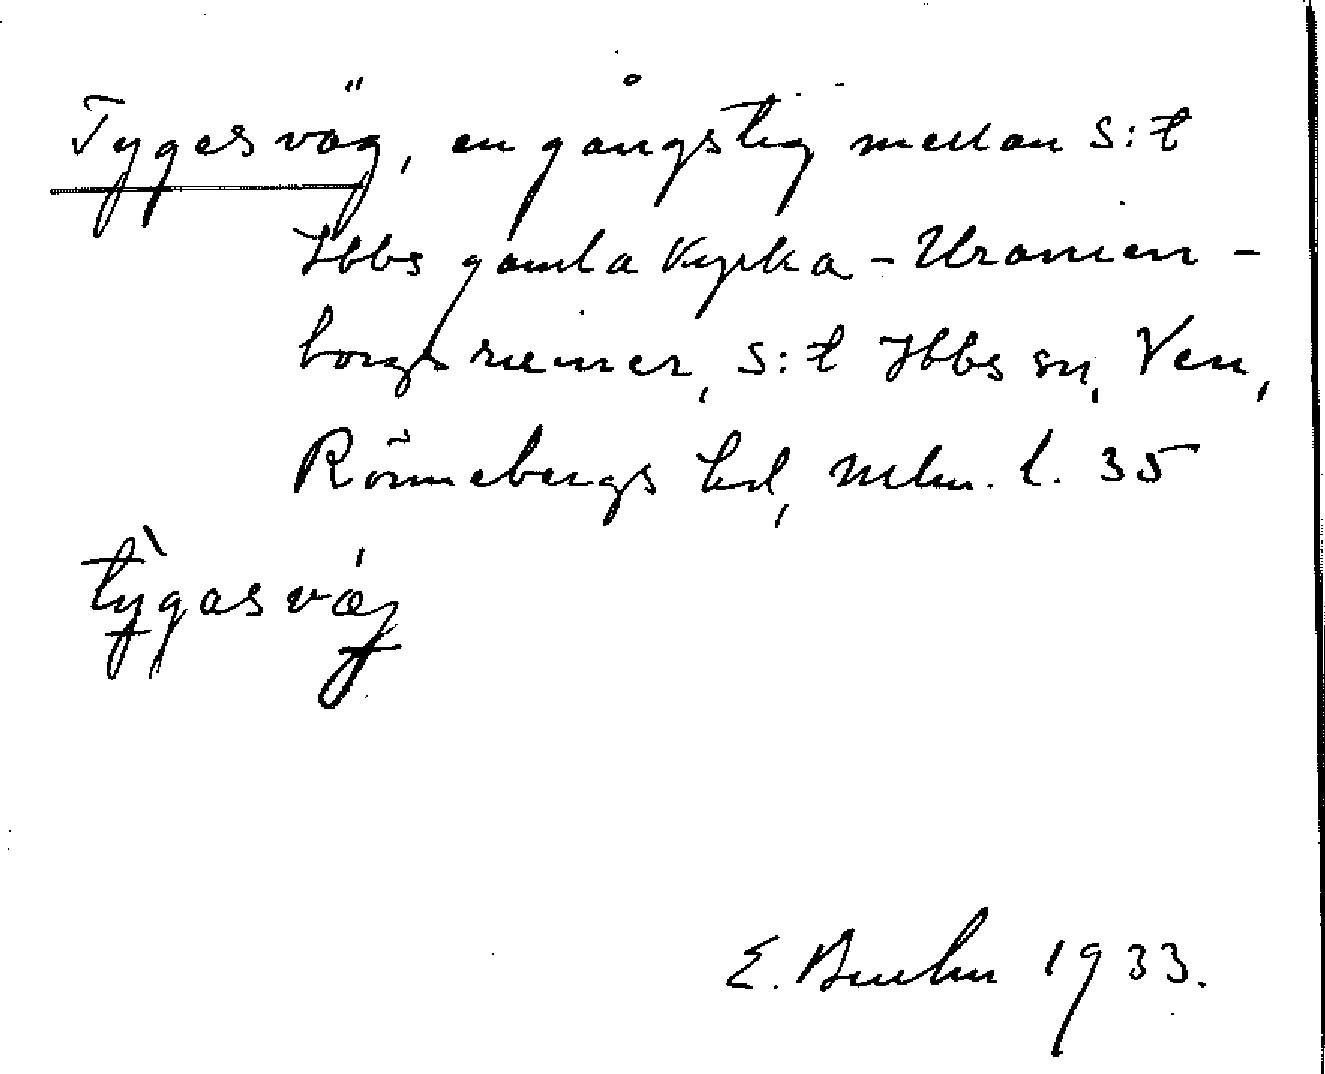 Tyges väg, en gångstig mellan S:t
Ibbs gamla kyrka - Uranien-
borgs ruiner, S:t Ibbs sn, Ven,
Rönnebergs hd, Mlm. l. 35
tỳgas vǽj
E. 1933.